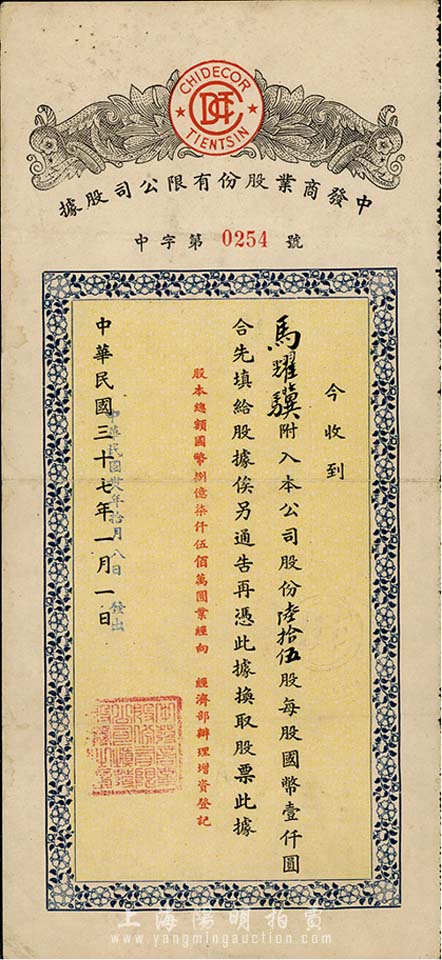 CHIDECOR
TIENTSIN
中發商業股份有限公司股據
中字第 0254 號
今收到
馬耀驥附入本公司股份陸拾伍股每股國幣壹仟圓
合先填給股據俟另通告再憑此據換取股票此據
股本總額國幣捌億柒仟伍佰萬圓業經向 經濟部辦理增資登記
中華民國三十七年一月一日
中華民國卅年拾月八日 發出
上海陽明拍賣
www.yangmingauction.com